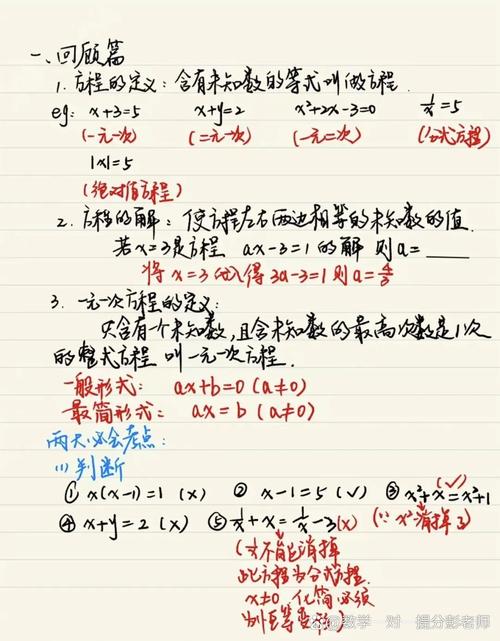 一、回顾篇
1. 方程的定义：含有未知数的等式叫做方程.
eg: x+3=5 x+y=2 x²+2x-3=0 1/x=5
(一元一次) (二元一次) (一元二次) (分式方程)
|x|=5
(绝对值方程)
2. 方程的解：使方程左右两边相等的未知数的值.
若x=3是方程 ax-3=1的解 则a=____
将x=3代入得3a-3=1则a=4/3
3. 一元一次方程的定义：
只含有一个未知数,且含未知数的最高次数是1次
的整式方程 叫一元一次方程.
一般形式： ax+b=0 (a≠0)
最简形式： ax=b (a≠0)
两大必会考点：
(1) 判断
① x(x-1)=1 (×) ② x-1=5 (√) ③ x²+x=x²+1 (√)
④ x+y=2 (×) ⑤ 1/x+x=1/x-3 (×) (∵x²消掉了)
(1/x不能消掉
此方程为分式方程.
x≠0, 化简必须
为恒等变形
@数学一对一提分彭老师